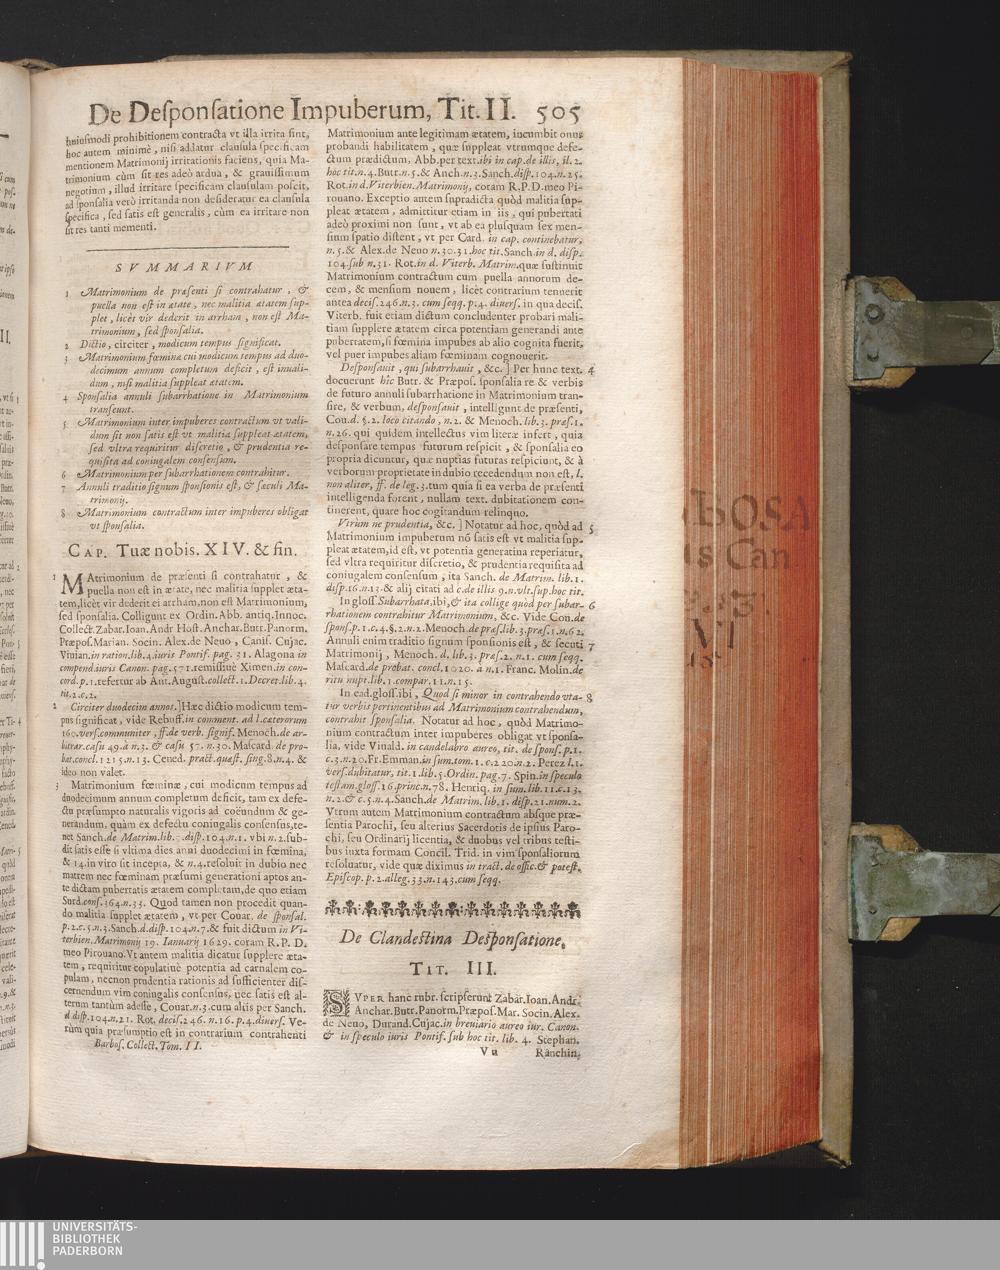 De Desponsatione Impuberum, Tit. II. 505
huiusmodi prohibitionem contracta vt illa irrita sint,
hoc autem minimè, nisi addatur clausula specificam
mentionem Matrimonij irritationis faciens, quia Ma-
trimonium cùm sit res adeò ardua, & grauissimum
negotium, illud irritare specificam clausulam poscit,
ad sponsalia verò irritanda non desideratur ea clausula
specifica, sed satis est generalis, cùm ea irritare non
sit res tanti mementi.
SVMMARIVM
1 Matrimonium de præsenti si contrahatur, &
puella non est in ætate, nec malitia ætatem sup-
plet, licèt vir dederit in arrham, non est Ma-
trimonium, sed sponsalia.
2 Dictio, circiter, modicum tempus significat.
3 Matrimonium fœmina cui modicum tempus ad duo-
decimum annum completum deficit, est inuali-
dum, nisi malitia suppleat ætatem.
4 Sponsalia annuli subarrhatione in Matrimonium
transeunt.
5 Matrimonium inter impuberes contractum vt vali-
dum sit non satis est vt malitia suppleat ætatem,
sed vltra requiritur discretio, & prudentia re-
quisita ad coniugalem consensum.
6 Matrimonium per subarrhationem contrahitur.
7 Annuli traditio signum sponsionis est, & sæculi Ma-
trimonij.
8 Matrimonium contractum inter impuberes obligat
vt sponsalia.
CAP. Tuæ nobis. XIV. & fin.
1 MAtrimonium de præsenti si contrahatur, &
puella non est in ætate, nec malitia supplet æta-
tem, licèt vir dederit ei arrham, non est Matrimonium,
sed sponsalia. Colligunt ex Ordin. Abb. antiq. Innoc.
Collect. Zabar. Ioan. Andr Host. Anchar. Butr. Panorm.
Præpos. Marian. Socin. Alex. de Neuo, Canis. Cujac.
Viuian. in ration. lib. 4. iuris Pontif. pag. 31. Alagona in
compend. iuris Canon. pag. 571. remissiuè Ximen. in con-
cord. p. 1. refertur ab Ant. August. collect. 1. Decret. lib. 4.
tit. 2. c. 2.
2 Circiter duodecim annos.] Hæc dictio modicum tem-
pus significat, vide Rebuff. in comment. ad l. cæterorum
160. vers. communiter, ff. de verb. signif. Menoch. de ar-
bitrar. casu 49. à n. 3. & casu 57. n. 30. Mascard. de pro-
bat. concl. 1215. n. 13. Cened. pract. quæst. sing. 8. n. 4. &
ideo non valet.
3 Matrimonium fœminæ, cui modicum tempus ad
duodecimum annum completum deficit, tam ex defe-
ctu præsumpto naturalis vigoris ad coëundum & ge-
nerandum, quàm ex defectu coniugalis consensus, te-
net Sanch. de Matrim. lib. 7. disp. 104. n. 1. vbi n. 2. sub-
dit satis esse si vltima dies anni duodecimi in fœmina,
& 14. in viro sit incepta, & n. 4. resoluit in dubio nec
matrem nec fœminam præsumi generationi aptos an-
te dictam pubertatis ætatem completam, de quo etiam
Surd. cons. 364. n. 33. Quod tamen non procedit quan-
do malitia supplet ætatem, vt per Couar. de sponsal.
p. 2. c. 5. n. 3. Sanch. d. disp. 104. n. 7. & fuit dictum in Vi-
terbien. Matrimonij 19. Ianuarij 1629. coram R. P. D.
meo Pirouano. Vt autem malitia dicatur supplere æta-
tem, requiritur copulatiuè potentia ad carnalem co-
pulam, necnon prudentia rationis ad sufficienter dis-
cernendum vim coniugalis consensus, nec satis est al-
terum tantùm adesse, Couar. n. 3. cum aliis per Sanch.
d. disp. 104. n. 21. Rot. decis. 246. n. 16. p. 4. diuers. Ve-
rùm quia præsumptio est in contrarium contrahenti
Barbos. Collect. Tom. II.
Matrimonium ante legitimam ætatem, incumbit onus
probandi habilitatem, quæ suppleat vtrumque defe-
ctum prædictum, Abb. per text. ibi in cap. de illis, il. 2.
hoc tit. n. 4. Butr. n. 5. & Anch. n. 3. Sanch. disp. 104. n. 25.
Rot. in d. Viterbien. Matrimonij, coram R. P. D. meo Pi-
rouano. Exceptio autem supradicta quòd malitia sup-
pleat ætatem, admittitur etiam in iis, qui pubertati
adeò proximi non sunt, vt ab ea plusquam sex men-
sium spatio distent, vt per Card. in cap. continebatur,
n. 5. & Alex. de Neuo n. 30. 31. hoc tit. Sanch. in d. disp.
104. sub n. 31. Rot. in d. Viterb. Matrim. quæ sustinuit
Matrimonium contractum cum puella annorum de-
cem, & mensium nouem, licèt contrarium tennerit
antea decis. 246. n. 3. cum seqq. p. 4. diuers. in qua decis.
Viterb. fuit etiam dictum concludenter probari mali-
tiam supplere ætatem circa potentiam generandi ante
pubertatem, si fœmina impubes ab alio cognita fuerit,
vel puer impubes aliam fœminam cognouerit.
Desponsauit, qui subarrhauit, &c.] Per hunc text. 4
docuerunt hîc Butr. & Præpos. sponsalia re & verbis
de futuro annuli subarrhatione in Matrimonium tran-
sire, & verbum, desponsauit, intelligunt de præsenti,
Cou. d. §. 2. loco citando, n. 2. & Menoch. lib. 3. præs. 1.
n. 26. qui quidem intellectus vim literæ infert, quia
desponsare tempus futurum respicit, & sponsalia eo
propria dicuntur, quæ nuptias futuras respiciunt, & à
verborum proprietate in dubio recedendum non est, l.
non aliter, ff. de leg. 3. tum quia si ea verba de præsenti
intelligenda forent, nullam text. dubitationem con-
tinerent, quare hoc cogitandum relinquo.
Virium ne prudentia, &c.] Notatur ad hoc, quòd ad 5
Matrimonium impuberum nō satis est vt malitia sup-
pleat ætatem, id est, vt potentia generatina reperiatur,
sed vltra requiritur discretio, & prudentia requisita ad
coniugalem consensum, ita Sanch. de Matrim. lib. 1.
disp. 16. n. 13. & alij citati ad c. de illis 9. n. vlt. sup. hoc tit.
In gloss. Subarrhata, ibi, & ita collige quòd per subar- 6
rhationem contrahitur Matrimonium, &c. Vide Con. de
spons. p. 1. c. 4. §. 2. n. 2. Menoch. de præs. lib. 3. præs. 1. n. 62.
Annuli enim traditio signum sponsionis est, & secuti 7
Matrimonij, Menoch. d. lib. 3. præs. 2. n. 1. cum seqq.
Mascard. de probat. concl. 1020. à n. 1. Franc. Molin. de
ritu nupt. lib. 1. compar. 11. n. 15.
In ead. gloss. ibi, Quod si minor in contrahendo vta- 8
tur verbis pertinentibus ad Matrimonium contrahendum,
contrahit sponsalia. Notatur ad hoc, quòd Matrimo-
nium contractum inter impuberes obligat vt sponsa-
lia, vide Viuald. in candelabro aureo, tit. de spons. p. 1.
c. 3. n. 20. Fr. Emman. in sum. tom. 1. c. 220. n. 2. Perez l. 1.
vers. dubitatur, tit. 1. lib. 5. Ordin. pag. 7. Spin. in speculo
testam. gloss. 16. princ. n. 78. Henriq. in sum. lib. 11. c. 13.
n. 2. & c. 5. n. 4. Sanch. de Matrim. lib. 1. disp. 21. num. 2.
Vtrum autem Matrimonium contractum absque præ-
sentia Parochi, seu alterius Sacerdotis de ipsius Paro-
chi, seu Ordinarij licentia, & duobus vel tribus testi-
bus iuxta formam Concil. Trid. in vim sponsaliorum
resoluatur, vide quæ diximus in tract. de offic. & potest.
Episcop. p. 2. alleg. 33. n. 143. cum seqq.
De Clandestina Desponsatione.
TIT. III.
SVPER hanc rubr. scripserunt Zabar. Ioan. Andr.
Anchar. Butr. Panorm. Præpos. Mar. Socin. Alex.
de Neuo, Durand. Cujac. in breuiario aureo iur. Canon.
& in speculo iuris Pontif. sub hoc tit. lib. 4. Stephan.
Vu Ranchin.
BOSA
is Can
UNIVERSITÄTS-
BIBLIOTHEK
PADERBORN